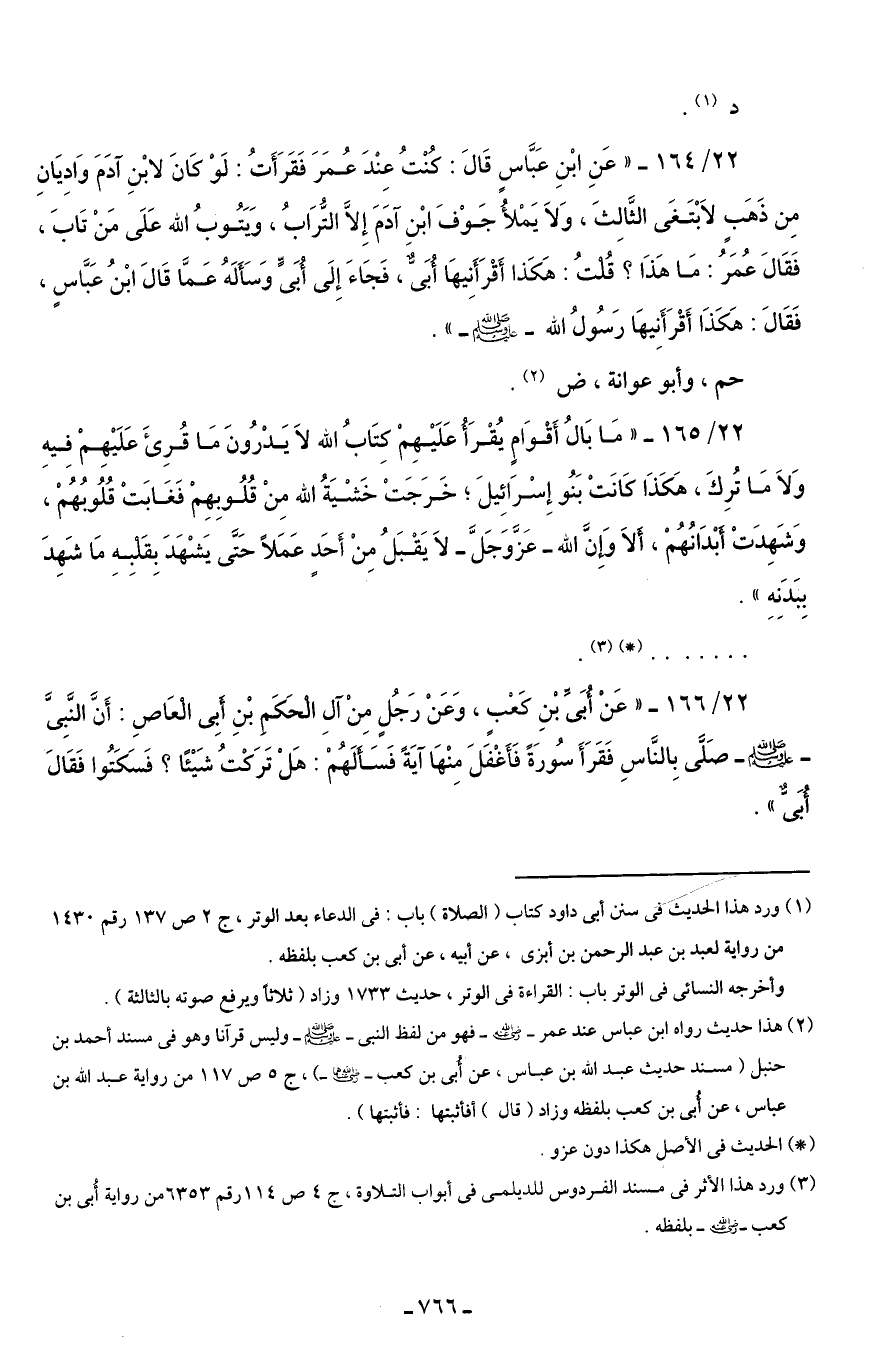 د (١) .
٢٢/ ١٦٤ ـ « عَنِ ابْنِ عَبَّاسٍ قَالَ : كُنْتُ عِنْدَ عُمَرَ فَقَرَأَتُ : لَوْ كَانَ لابْنِ آدَمَ وَادِيَانِ
مِن ذَهَبٍ لاَبْتَغَى الثَّالِثَ ، وَلاَ يَمْلأُ جَوْفَ ابْنِ آدَمَ إِلاَّ التُّرَابُ ، وَيَتُوبُ الله عَلَى مَنْ تَابَ ،
فَقَالَ عُمَرُ : مَا هَذَا ؟ قُلْتُ : هَكَذا أَقْرَأَنِيهَا أُبَىٌّ ، فَجَاءَ إِلَى أُبَىٍّ وَسَأَلَهُ عَمَّا قَالَ ابْنُ عَبَّاسٍ ،
فَقَالَ : هَكَذَا أَقْرَأَنِيهَا رَسُولُ الله ـ ﷺ ـ » .
حم ، وأبو عوانة ، ض (٢) .
٢٢/ ١٦٥ ـ « مَا بَالُ أَقْوَامٍ يُقْرَأُ عَلَيْهِمْ كِتَابُ الله لاَ يَدْرُونَ مَا قُرِئَ عَلَيْهِمْ فِيهِ
وَلاَ مَا تُرِكَ ، هَكَذَا كَانَتْ بَنُو إِسْرَائِيلَ ؛ خَرَجَتْ خَشْيَةُ الله مِنْ قُلُوبِهِمْ فَغَابَتْ قُلُوبُهُمْ ،
وَشَهِدَتْ أَبْدَانُهُمْ ، أَلاَ وَإِنَّ الله ـ عَزَّوَجَلَّ ـ لاَ يَقْبَلُ مِنْ أَحَدٍ عَمَلاً حَتَّى يَشْهَدَ بِقَلْبِهِ مَا شَهِدَ
بِبَدَنِهِ » .
. . . . . . . (*) (٣) .
٢٢/ ١٦٦ ـ « عَنْ أُبَىِّ بْنِ كَعْبٍ ، وَعَنْ رَجُلٍ مِنْ آلِ الْحَكَمِ بْنِ أَبِى الْعَاصِ : أَنَّ النَّبِىَّ
ـ ﷺ ـ صَلَّى بِالنَّاسِ فَقَرَأَ سُورَةً فَأَغْفَلَ مِنْهَا آيَةً فَسَأَلَهُمْ : هَلْ تَرَكْتُ شَيْئًا ؟ فَسَكَتُوا فَقَالَ
أُبَىٌّ » .
(١) ورد هذا الحديث فى سنن أبى داود كتاب ( الصلاة ) باب : فى الدعاء بعد الوتر ، ج ٢ ص ١٣٧ رقم ١٤٣٠
من رواية لعبد بن عبد الرحمن بن أبزى ، عن أبيه ، عن أبى بن كعب بلفظه .
وأخرجه النسائى فى الوتر باب : القراءة فى الوتر ، حديث ١٧٣٣ وزاد ( ثلاثاً ويرفع صوته بالثالثة ) .
(٢) هذا حديث رواه ابن عباس عند عمر ـ رضي الله عنه ـ فهو من لفظ النبى ـ ﷺ ـ وليس قرآنا وهو فى مسند أحمد بن
حنبل ( مسند حديث عبد الله بن عباس ، عن أُبى بن كعب ـ رضي الله عنهما ـ ) ، ج ٥ ص ١١٧ من رواية عبد الله بن
عباس ، عن أُبى بن كعب بلفظه وزاد ( قال ) أفأثبتها : فأثبتها ) .
(*) الحديث فى الأصل هكذا دون عزو .
(٣) ورد هذا الأثر فى مسند الفردوس للديلمى فى أبواب التلاوة ، ج ٤ ص ١١٤ رقم ٦٣٥٣من رواية أُبى بن
كعب ـ رضي الله عنه ـ بلفظه .
ـ ٧٦٦ ـ